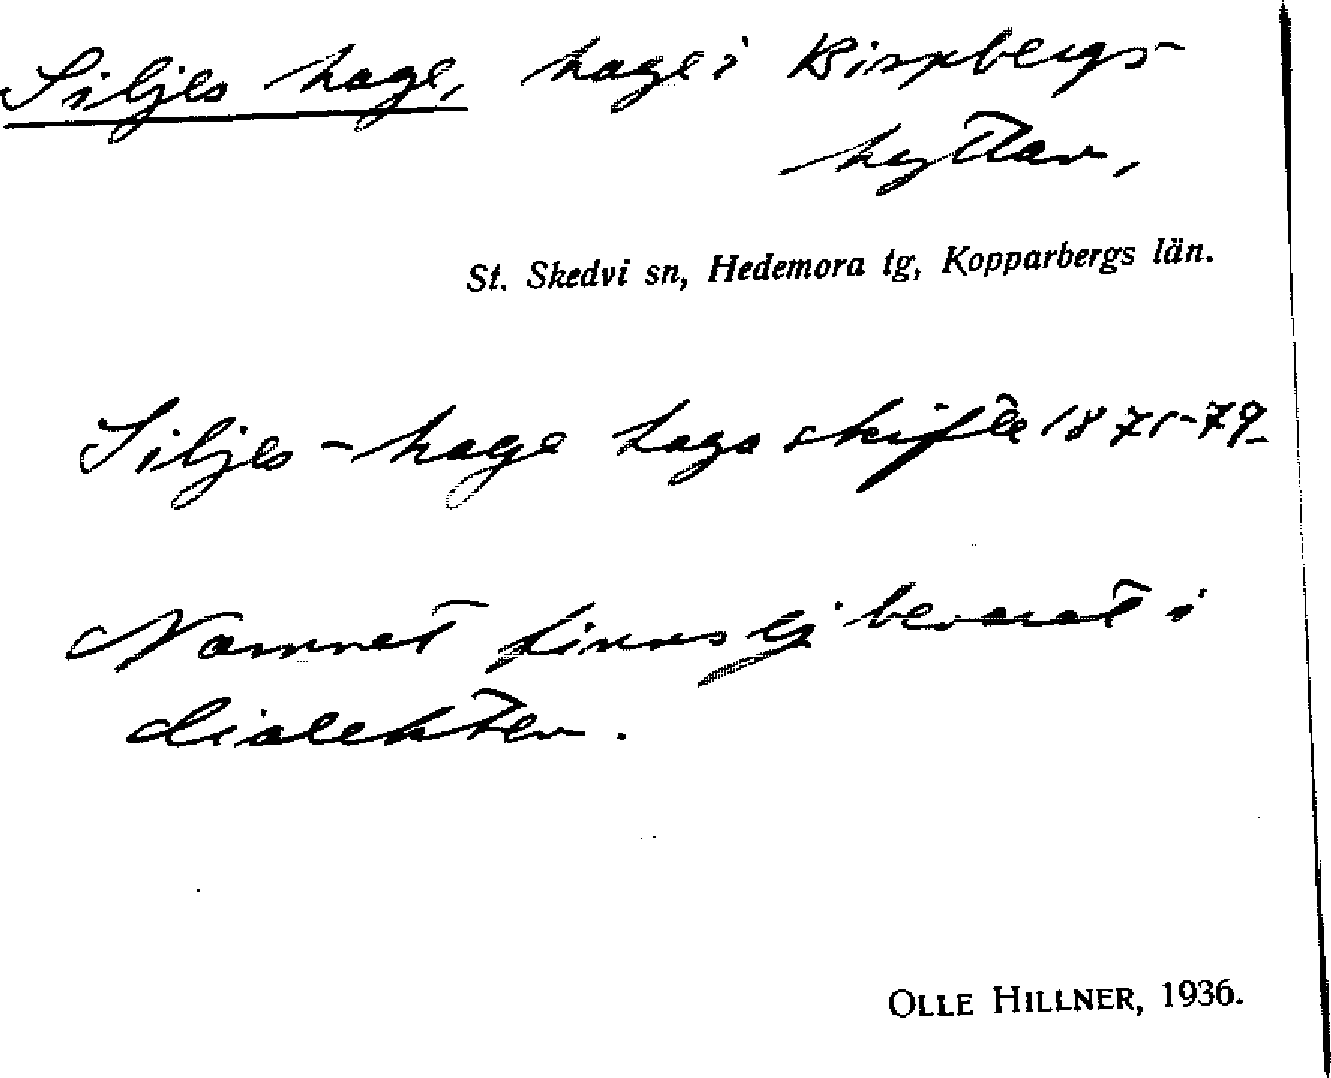 Siljes hage, hage i Bispbergs-
hyttan,
St. Skedvi sn, Hedemora tg, Kopparbergs län.
Siljes-hage laga skifte 1871-79
Namnet finns ej bevarat i
dialekten.
OLLE HILLNER, 1936.